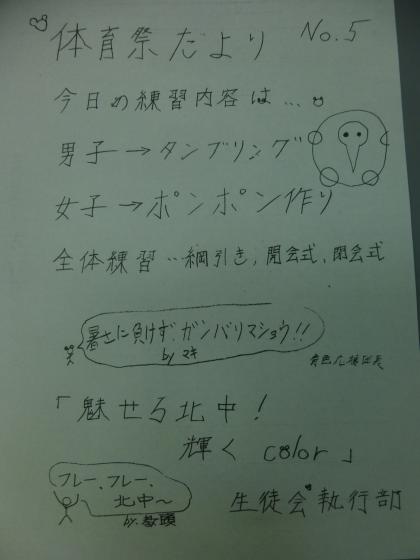 体育祭だより No.5
今日の練習内容は…
男子→タンブリング
女子→ポンポン作り
全体練習…綱引き,開会式,閉会式
暑さに負けず、ガンバリマショウ!!
by マキ
「魅せろ北中!
輝く color」
フレー、フレー、
北中〜
by.教頭
生徒会執行部